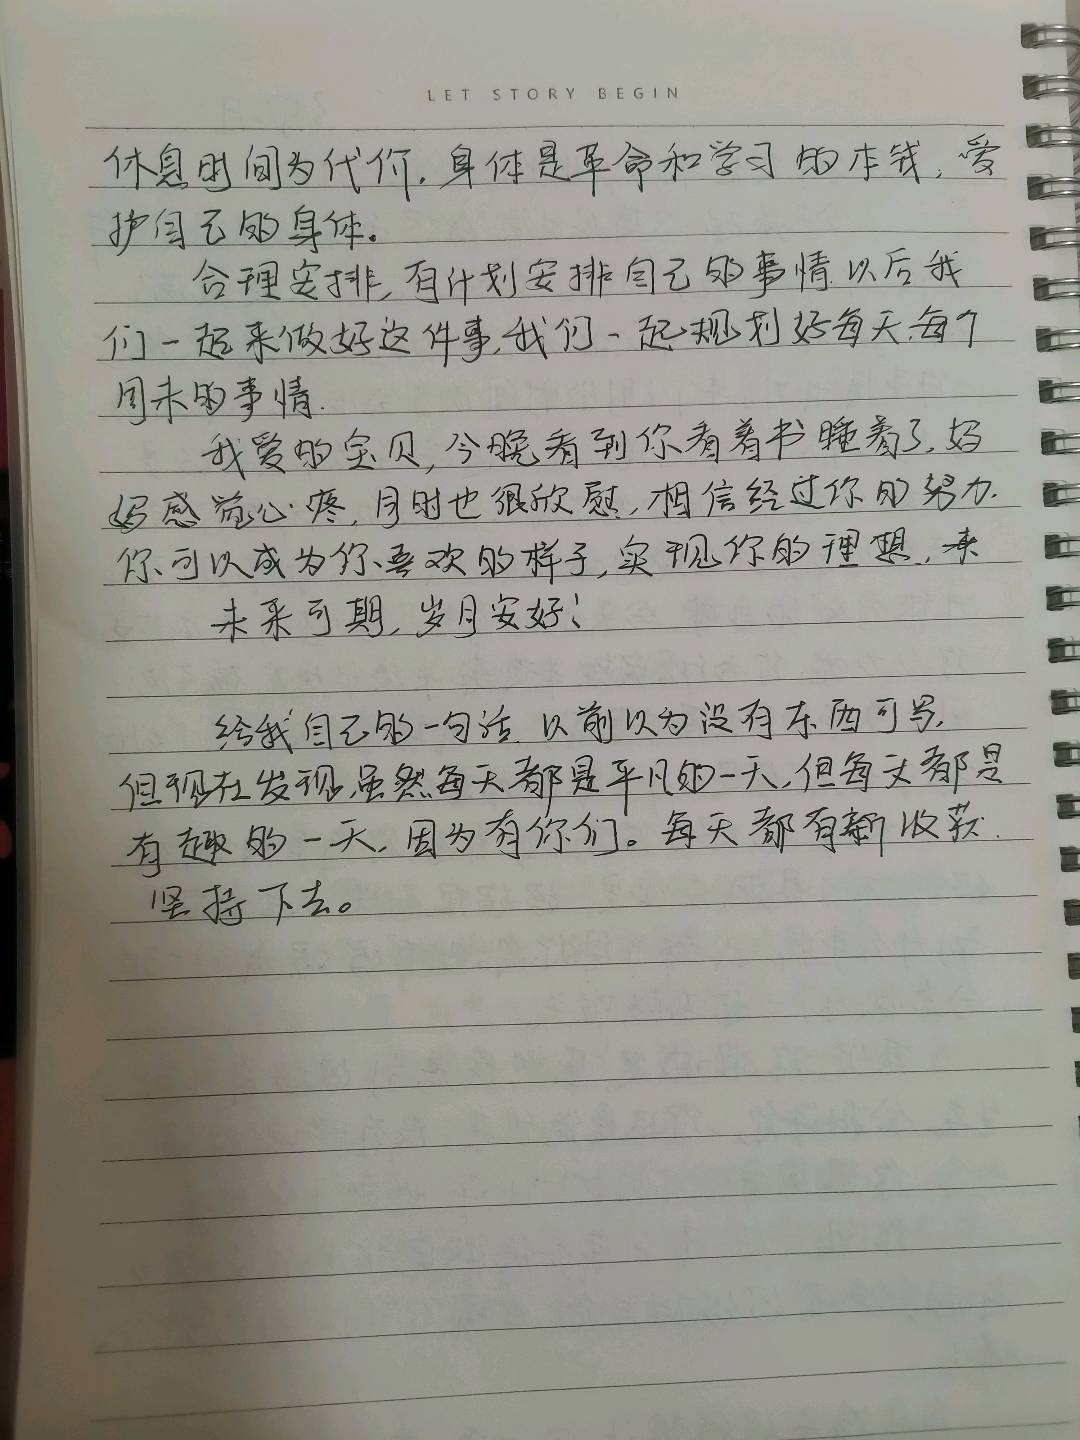 LET STORY BEGIN
休息时间为代价,身体是革命和学习的本钱,爱
护自己的身体。
合理安排,有计划安排自己的事情.以后我
们一起来做好这件事,我们一起规划好每天,每个
周末的事情.
我爱的宝贝,今晚看到你看着书睡着了,妈
妈感觉心疼,同时也很欣慰,相信经过你的努力.
你可以成为你喜欢的样子,实现你的理想,未
未来可期,岁月安好!
给我自己的一句话.以前以为没有东西可写,
但现在发现,虽然每天都是平凡的一天,但每天都是
有趣的一天,因为有你们。每天都有新收获.
坚持下去。